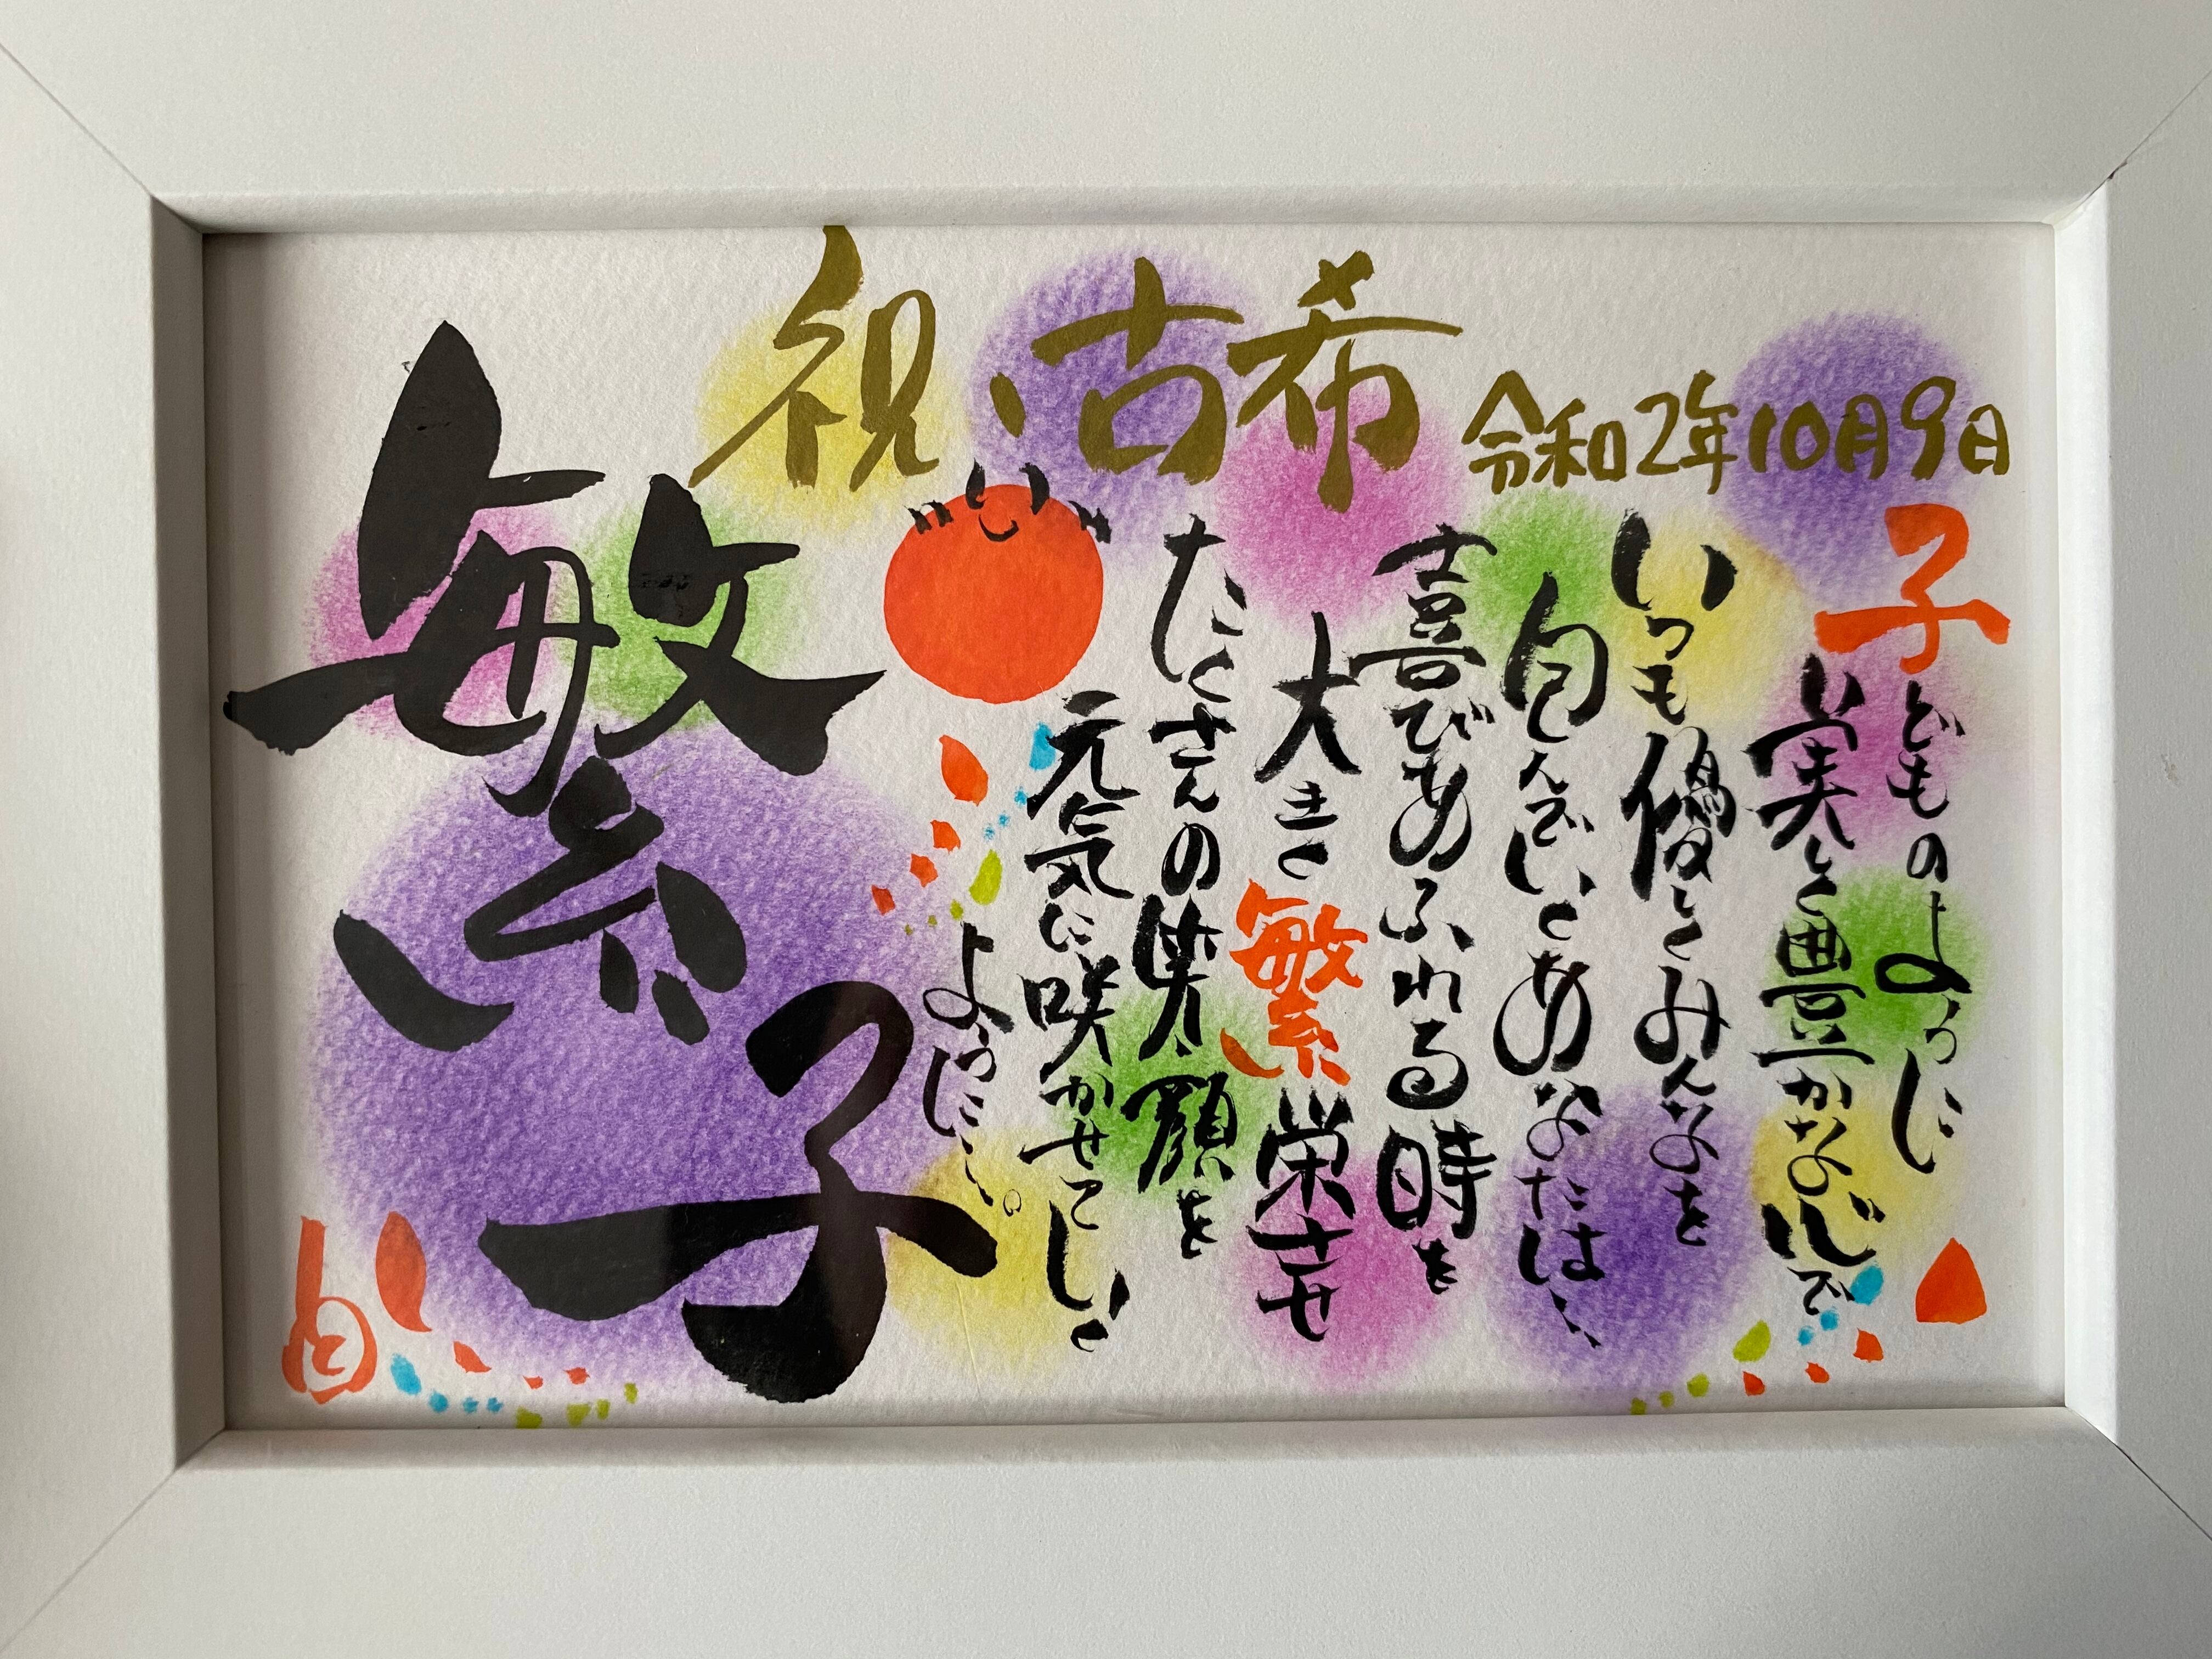 祝、古希
令和2年10月9日
子どものように
美しく豊かな心で
いつも優しくみんなを
包んでいくあなたは…
喜びあふれる時を
大きく繁栄させ
たくさんの笑顔を
元気に咲かせていく
ように…。
繁子